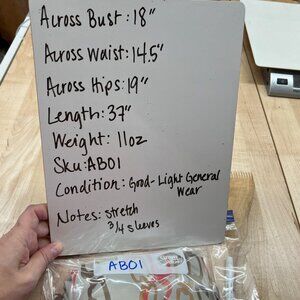 Across Bust: 18"
Across Waist: 14.5"
Across Hips: 19"
Length: 37"
Weight: 11oz
Sku: AB01
Condition: Good-Light General
Wear
Notes: stretch
3/4 sleeves
AB01